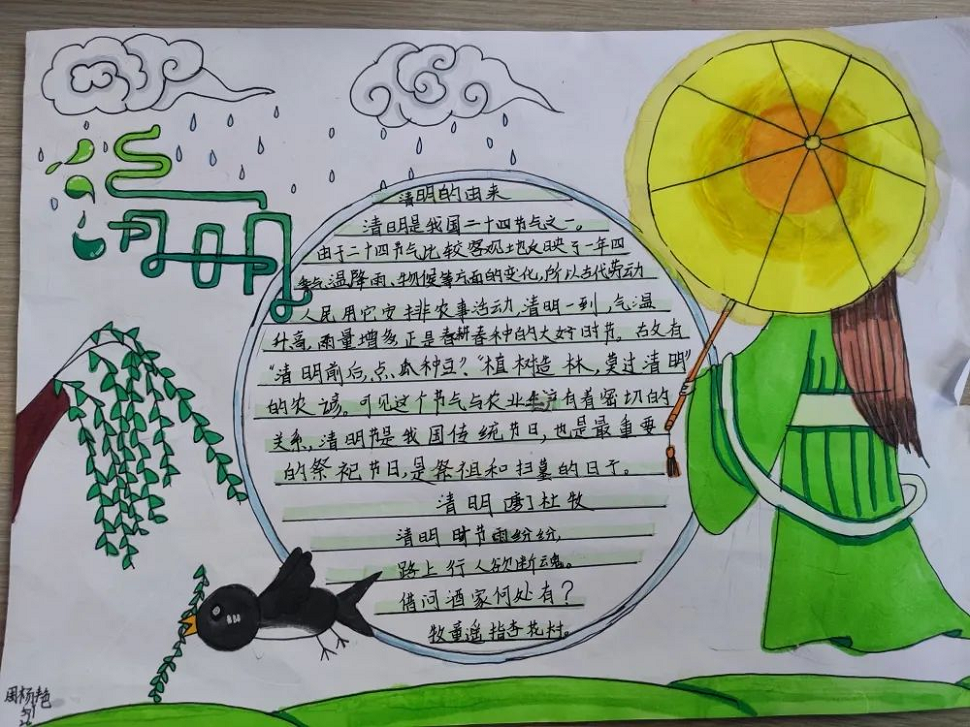 清明
清明的由来
清明是我国二十四节气之一。
由于二十四节气比较客观地反映了一年四
季气温降雨、物候等方面的变化,所以古代劳动
人民用它安排农事活动,清明一到,气温
升高,雨量增多正是春耕春种的大好时节。故有
“清明前后,点瓜种豆”。“植树造林,莫过清明”
的农谚。可见这个节气与农业生产有着密切的
关系,清明节是我国传统节日,也是最重要
的祭祀节日,是祭祖和扫墓的日子。
清明 [唐] 杜牧
清明时节雨纷纷,
路上行人欲断魂。
借问酒家何处有?
牧童遥指杏花村。